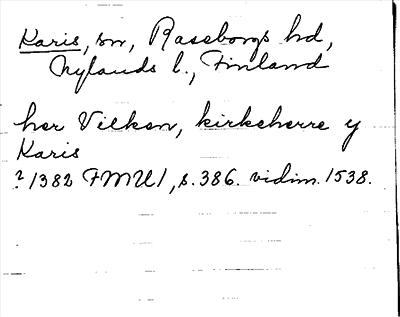 Karis, sn, Raseborgs hd,
Nylands l., Finland
her Vilken, kirkeherre y
Karis
? 1382 FMU I, s. 386. vidim. 1538.